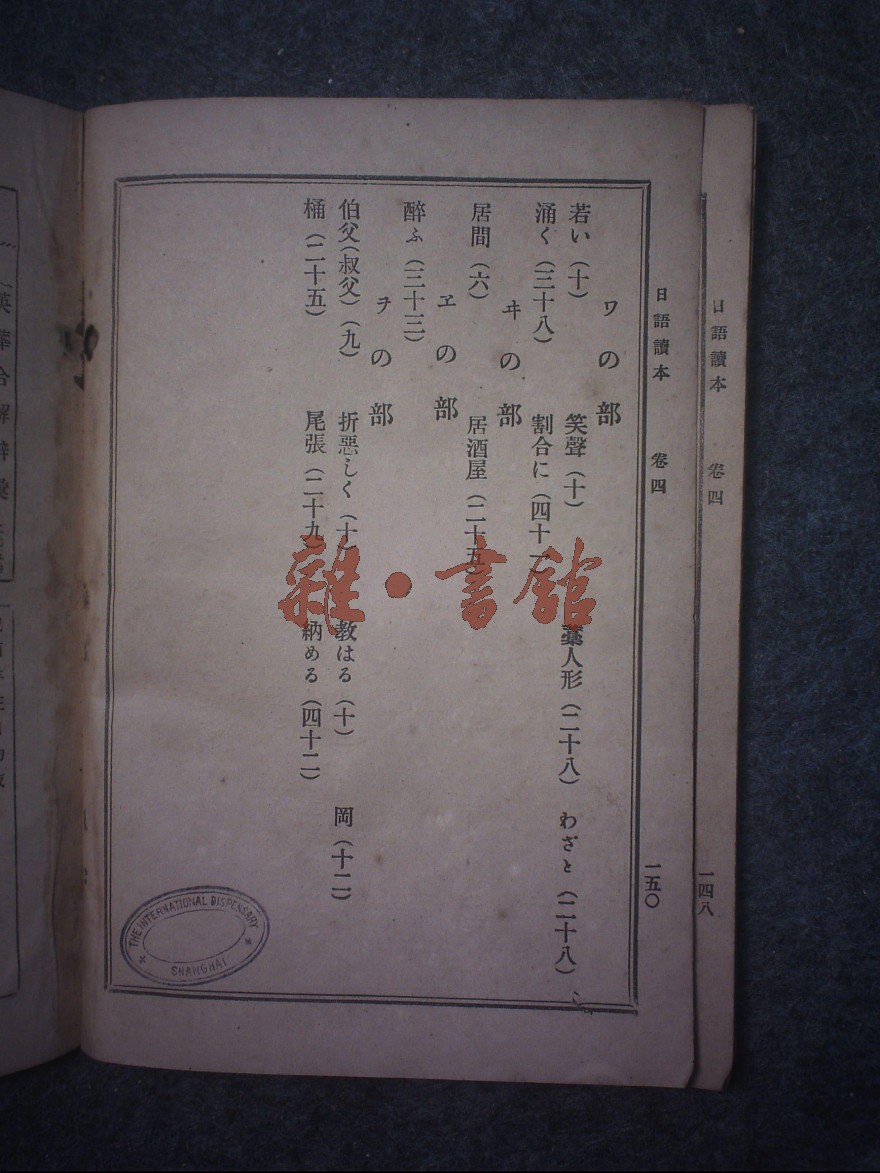 日語讀本 卷四 一四八
日語讀本 卷四 一五〇
ワの部
若い（十） 笑聲（十） 藁人形（二十八） わざと（二十八）
涌く（三十八） 割合に（四十一）
ヰの部
居間（六） 居酒屋（二十五）
ヱの部
醉ふ（三十三）
ヲの部
伯父（叔父）（九） 折惡しく（十） 教はる（十） 岡（十二）
桶（二十五） 尾張（二十九） 納める（四十二）
雜·書館
THE INTERNATIONAL DISPENSARY
SHANGHAI